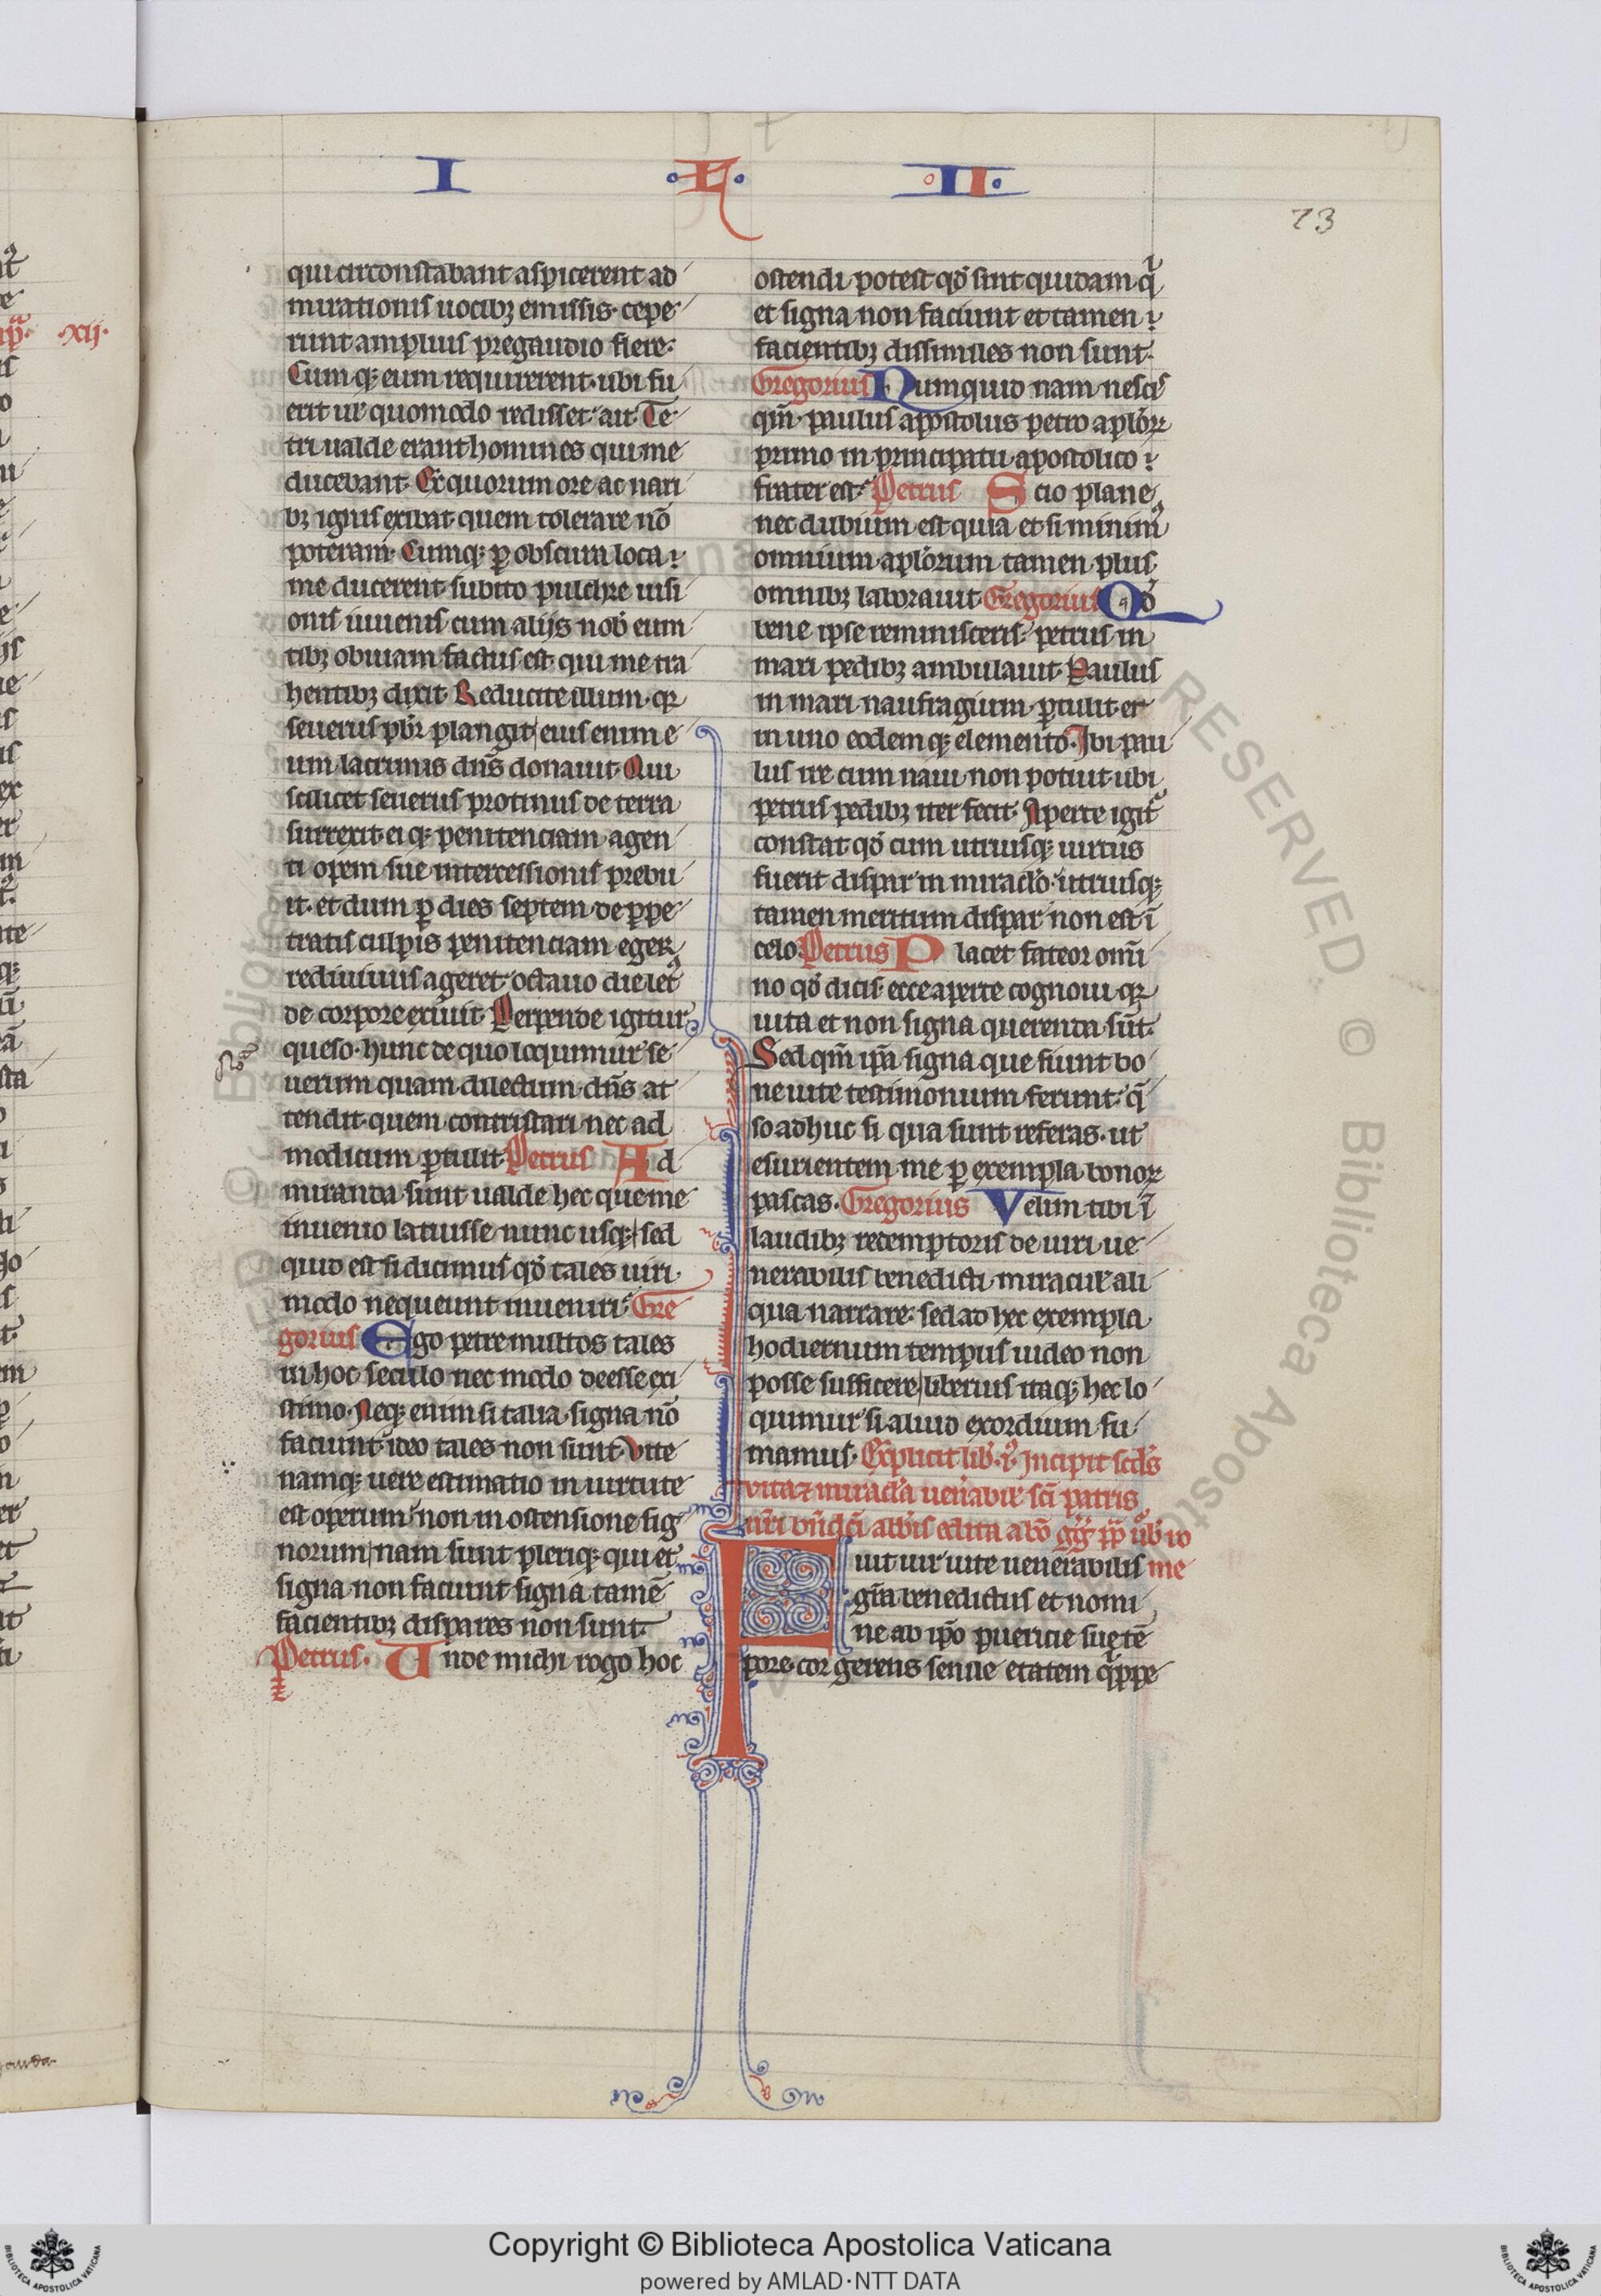 I · R · II ·
73
qui circonstabant aspicerent ad
mirationis uocibꝫ emissis. cepe
runt amplius pregaudio flere.
Cumqꝫ eum requirerent. ubi fu
erit uꝉ quomodo redisset. ait. Te
tri ualde erant homines qui me
ducebant. Ex quorum ore ac nari
bꝫ ignis exibat quem tolerare nō
poteram. Cumqꝫ ꝑ obscura loca
me ducerent. subito pulchre uisi
onis iuuenis cum alijs nob̄ eun
tibꝫ obuiam factus est. qui me tra
hentibꝫ dixit. Reducite illum. qꝛ
seuerus pbr̄ plangit. eius enim e
um lacrimis dn̄s donauit. Qui
scilicet seuerus protinus de terra
surrexit. eiqꝫ penitenciam agen
ti opem sue intercessionis prebu
it. et dum ꝑ dies septem de ꝑpe
tratis culpis penitenciam egeꝝ
rediuiuus ageret. octauo die letꝰ
de corpore exiuit. Perpende igitur
queso. hunc de quo loquimur se
uerum quam dilectum dn̄s at
tendit. quem contristari nec ad
modicum ꝑtulit. Petrus Ad
miranda sunt ualde hec que me
inuenio latuisse nunc usqꝫ. sed
quid est si dicimus qđ tales uiri
modo nequeunt inueniri. Gre
gorius Ego petre multos tales
in hoc seculo nec modo deesse exi
stimo. Neqꝫ enim si talia signa nō
faciunt. ideo tales non sunt. Vite
namqꝫ uere estimatio in uirtute
est operum. non in ostensione sig
norum. nam sunt pleriqꝫ qui et
signa non faciunt. signa tamē
facientibꝫ dispares non sunt.
Petrus. Unde michi rogo hoc
ostendi potest qđ sint quidam qͥ
et signa non faciunt et tamen
facientibꝫ dissimiles non sunt.
Gregorius Numquid nam nescis
qm̄ paulus apostolus petro apl̄oꝝ
primo in principatu apostolico
frater est. Petrus Scio plane
nec dubium est quia et si minimꝰ
omnium apl̄orum tamen plus
omnibꝫ laborauit. Gregorius Qđ
bene ipse reminisceris. petrus in
mari pedibꝫ ambulauit. Paulus
in mari naufragium ꝑtulit. et
in uno eodemqꝫ elemento. Ibi pau
lus ire cum naui non potuit ubi
petrus pedibꝫ iter fecit. Aperte igitͬ
constat qđ cum utriusqꝫ uirtus
fuerit dispar in miracl̄o. utriusqꝫ
tamen meritum dispar non est ī
celo. Petrus Placet fateor omī
no qđ dicis. ecce aperte cognoui qꝛ
uita et non signa querenda sūt.
Sed qm̄ ip̄a signa que fiunt bo
ne uite testimonium ferunt. q̄
so adhuc si qua sunt referas. ut
esurientem me ꝑ exempla bonoꝝ
pascas. Gregorius Velim tibi ī
laudibꝫ redemptoris de uiri ue
nerabilis benedicti miraculꝭ ali
qua narrare. sed ad hec exempla
hodiernum tempus uideo non
posse sufficere. liberius itaqꝫ hec lo
quimur si aliud exordium su
mamus. Explicit lib. i. Incipit scd̄s
vita ⁊ miracl̄a uen̄abiꝉ sc̄i patris
nr̄i bn̄dc̄i abb̄is edita a bō gḡ pp̄ ub̄ ro
Fuit uir uite uenerabilis me
gr̄a benedictus et nomi
ne ab ip̄o puericie suę tē
pore cor gerens senile etatem qͥppe
Copyright © Biblioteca Apostolica Vaticana
powered by AMLAD·NTT DATA